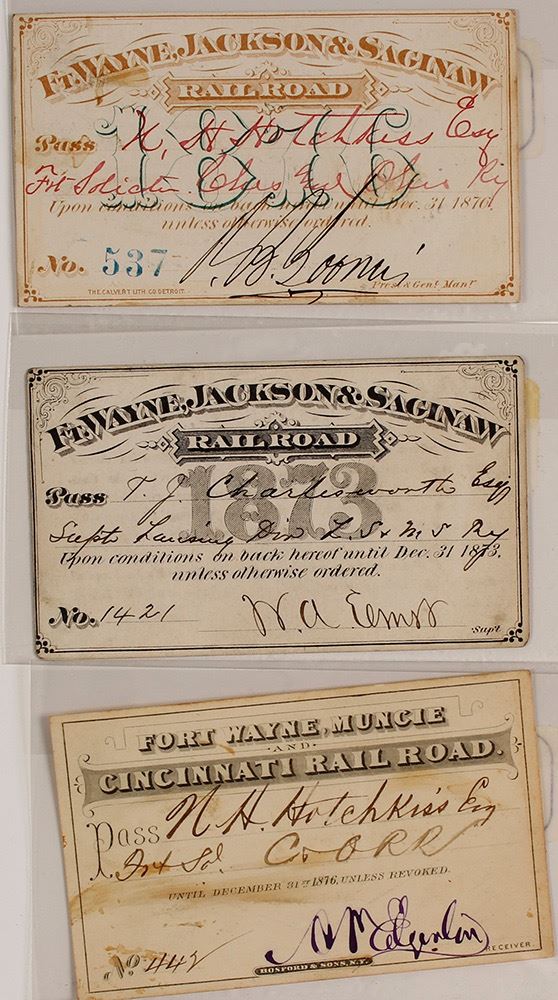 FT. WAYNE, JACKSON & SAGINAW
RAIL ROAD
1876
Pass N. H. Hotchkiss Esq
Frt Solictr Ches and Ohio Ry
Upon conditions on back hereof until Dec. 31 1876,
unless otherwise ordered.
No. 537
Pres. & Genl. Manr.
THE CALVERT LITH. CO. DETROIT.
FT. WAYNE, JACKSON & SAGINAW
RAIL ROAD
1873
Pass T. J. Charlesworth Esq
Supt Lansing Div L. S & M S Ry
Upon conditions on back hereof until Dec. 31 1873,
unless otherwise ordered.
No. 1421 W. A. Ernst
Supt.
FORT WAYNE, MUNCIE
AND
CINCINNATI RAIL ROAD.
Pass N. H. Hotchkiss Esq
Frt Sol C & O RR
UNTIL DECEMBER 31ST 1876, UNLESS REVOKED.
No 442
RECEIVER.
HOSFORD & SONS, N.Y.